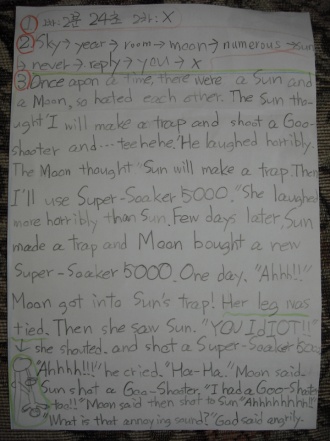 ① 1차: 2분 24초 2차: X
② Sky → year → room → moon → numerous → sun
→ never → reply → you → x
③ Once upon a time, there were a Sun and
a Moon, so hated each other. The Sun tho-
ught 'I will make a trap and shoot a Goo-
shooter and... teehehe.' He laughed horribly.
The Moon thought 'Sun will make a trap. Then
I'll use Super-Soaker 5000.' She laughed
more horribly than Sun. Few days later, Sun
made a trap and Moon bought a new
Super-Soaker 5000. One day, "Ahhh!!"
Moon got into Sun's trap! Her leg was
tied. Then she saw Sun. "YOU IdIOT!!"
she shouted. and shot a Super-Soaker 5000
"Ahhhh!!" he cried. "Ha-Ha." Moon said.
Sun shot a Goo-Shooter. "I had a Goo-Shooter
too!!" Moon said then shot to Sun. "Ahhhhhhhhh!!"
"What is that annoying sound?" God said angrily.